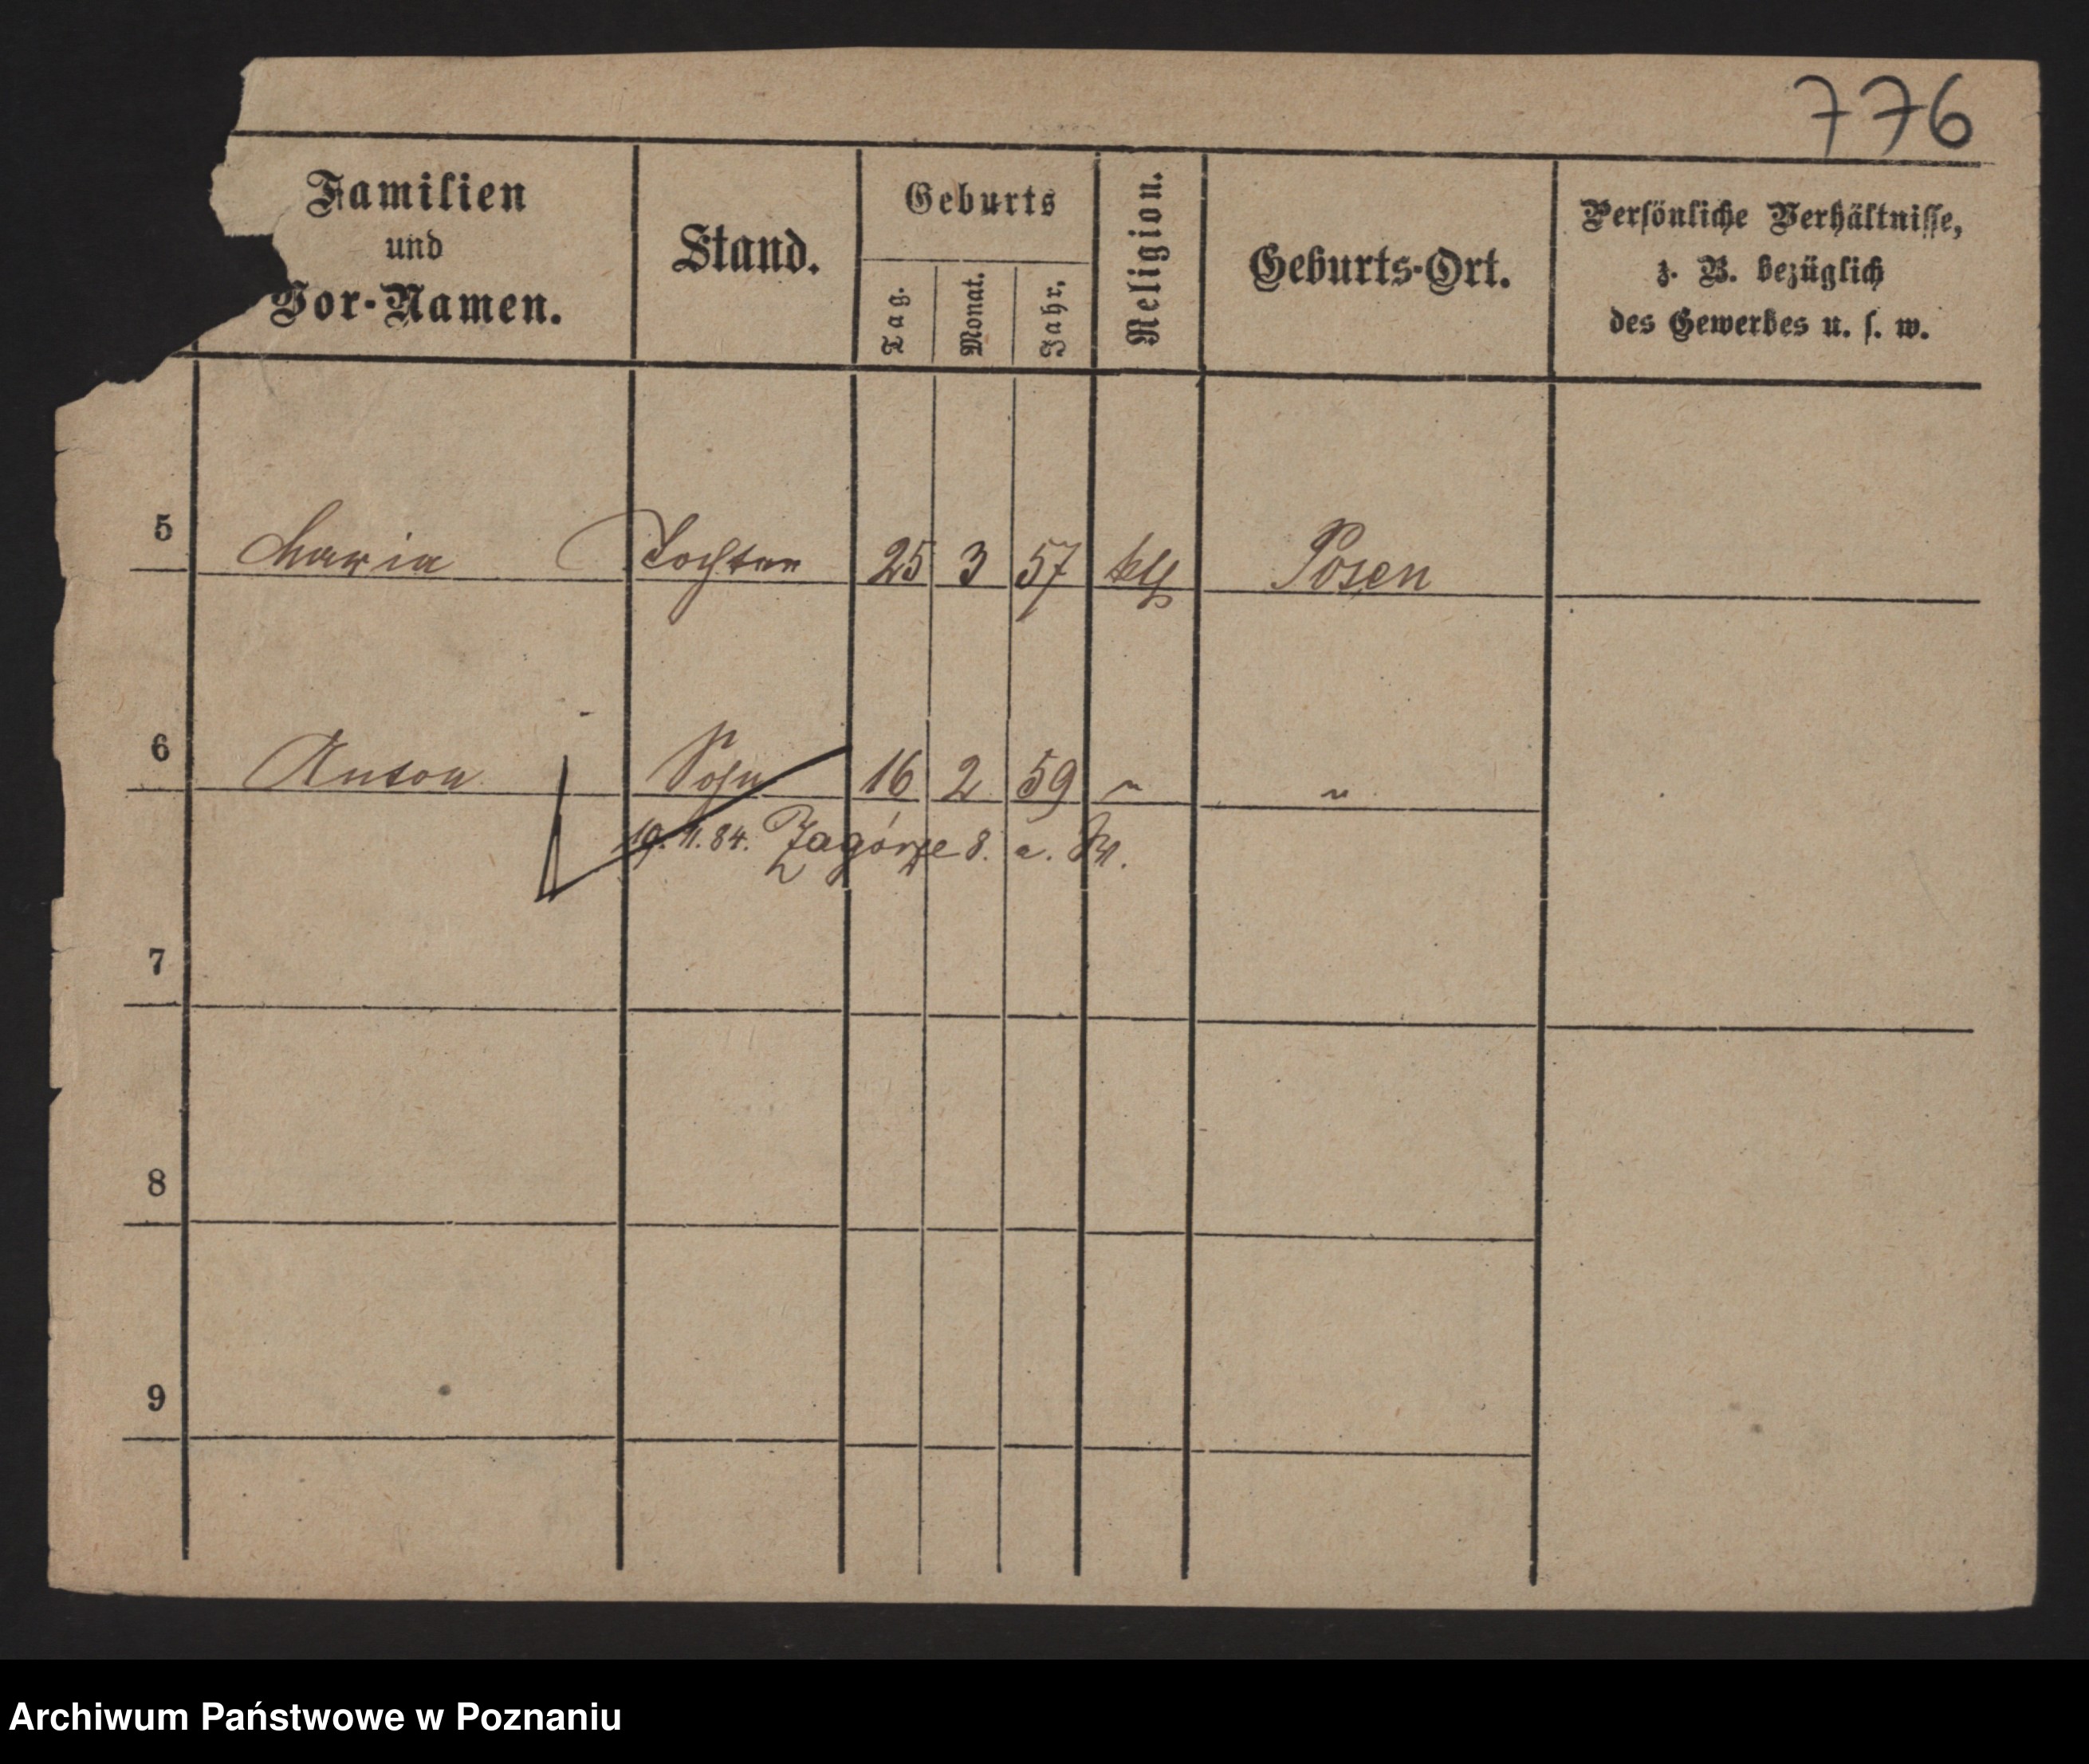 776
Familien
und
Vor-Namen.
Stand.
Geburts
Tag.
Monat.
Jahr.
Religion.
Geburts-Ort.
Persönliche Verhältnisse,
z. B. bezüglich
des Gewerbes u. s. w.
5 Maria Tochter 25 3 57 kth Posen
6 Anton Sohn 16 2 59 " "
19. 11. 84. Zagórze 8. a.
7
8
9
Archiwum Państwowe w Poznaniu